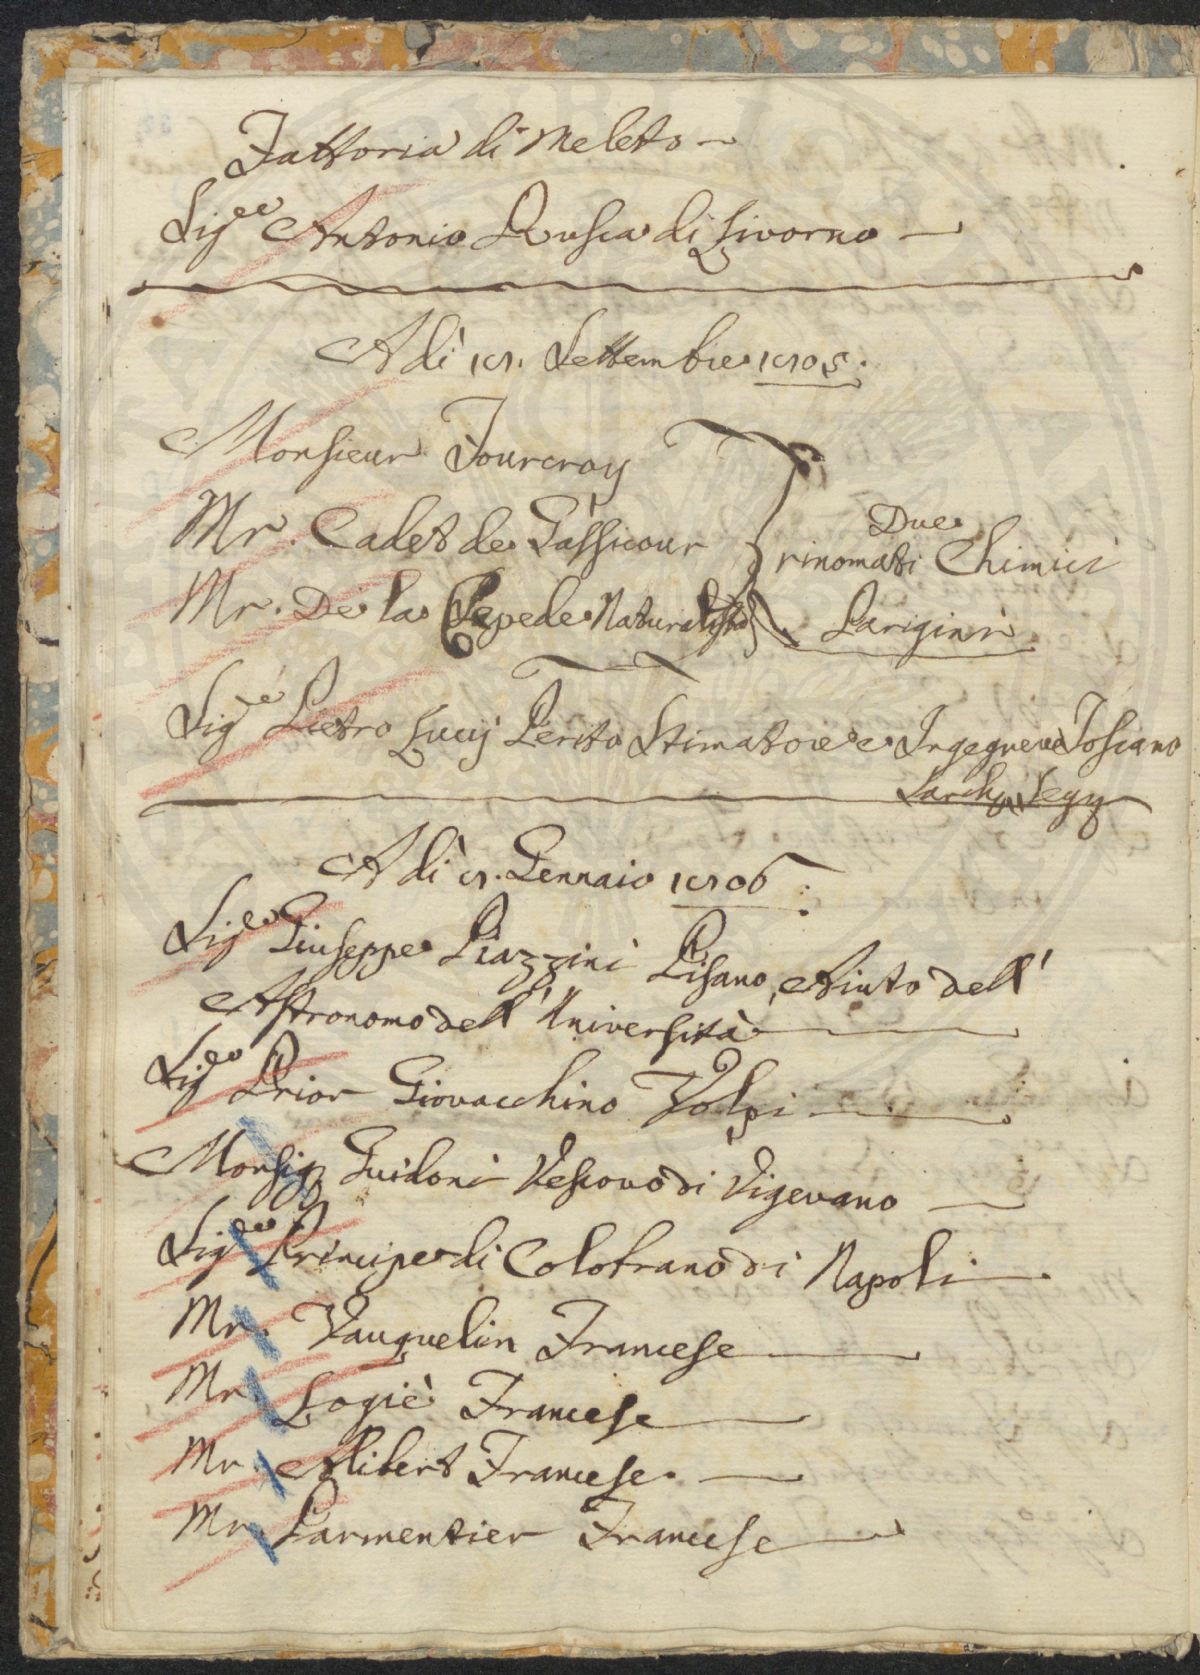 Fattoria di Meleto
Sig.re Antonio Rusca di Livorno
A dì 18. Settembre 1805.
Monsieur Fourcroy
Mr. Cadet de Gassicour
Due
rinomati Chimici
Mr. De la Cepede Naturalista
Parigini
Sig.re Pietro Lucij Perito Stimatore e Ingegnere Toscano
A dì 8. Gennaio 1806
Sig.re Giuseppe Piazzini Pisano, Aiuto dell'
Astronomo dell' Università
Sig.re Prior Giovacchino Volpi
Monsig. Guidoni Vescovo di Vigevano
Sig.re Principe di Colobrano di Napoli
Mr. Vauquelin Francese
Mr. Logiè Francese
Mr. Alibert Francese.
Mr. Parmentier Francese